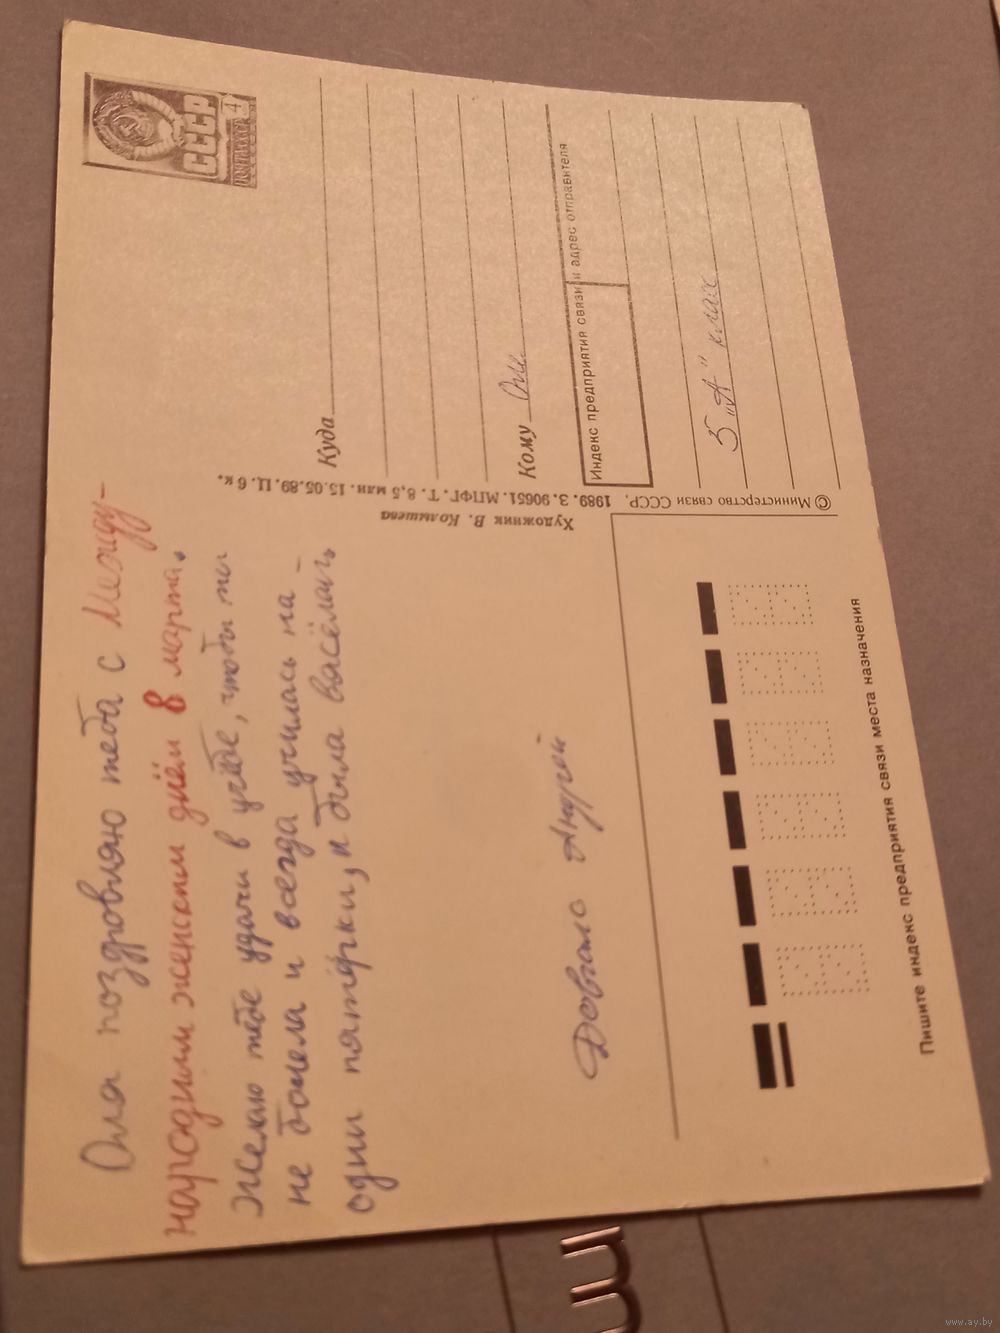 Оля поздровляю тебя с Между-
народным женским днём 8 марта.
Желаю тебе удачи в учёбе, чтобы ты
не болела и всегда училась на
одни пятёрки, и была васёлая.
Андрей
СССР
ПОЧТА СССР 4
Куда
Кому Оле
Индекс предприятия связи и адрес отправителя
5 „А" класс
Художник В. Колышева
© Министерство связи СССР. 1989. З. 90651. МПФГ. Т. 8,5 млн. 15.05.89. Ц. 6 к.
Пишите индекс предприятия связи места назначения
www.ay.by